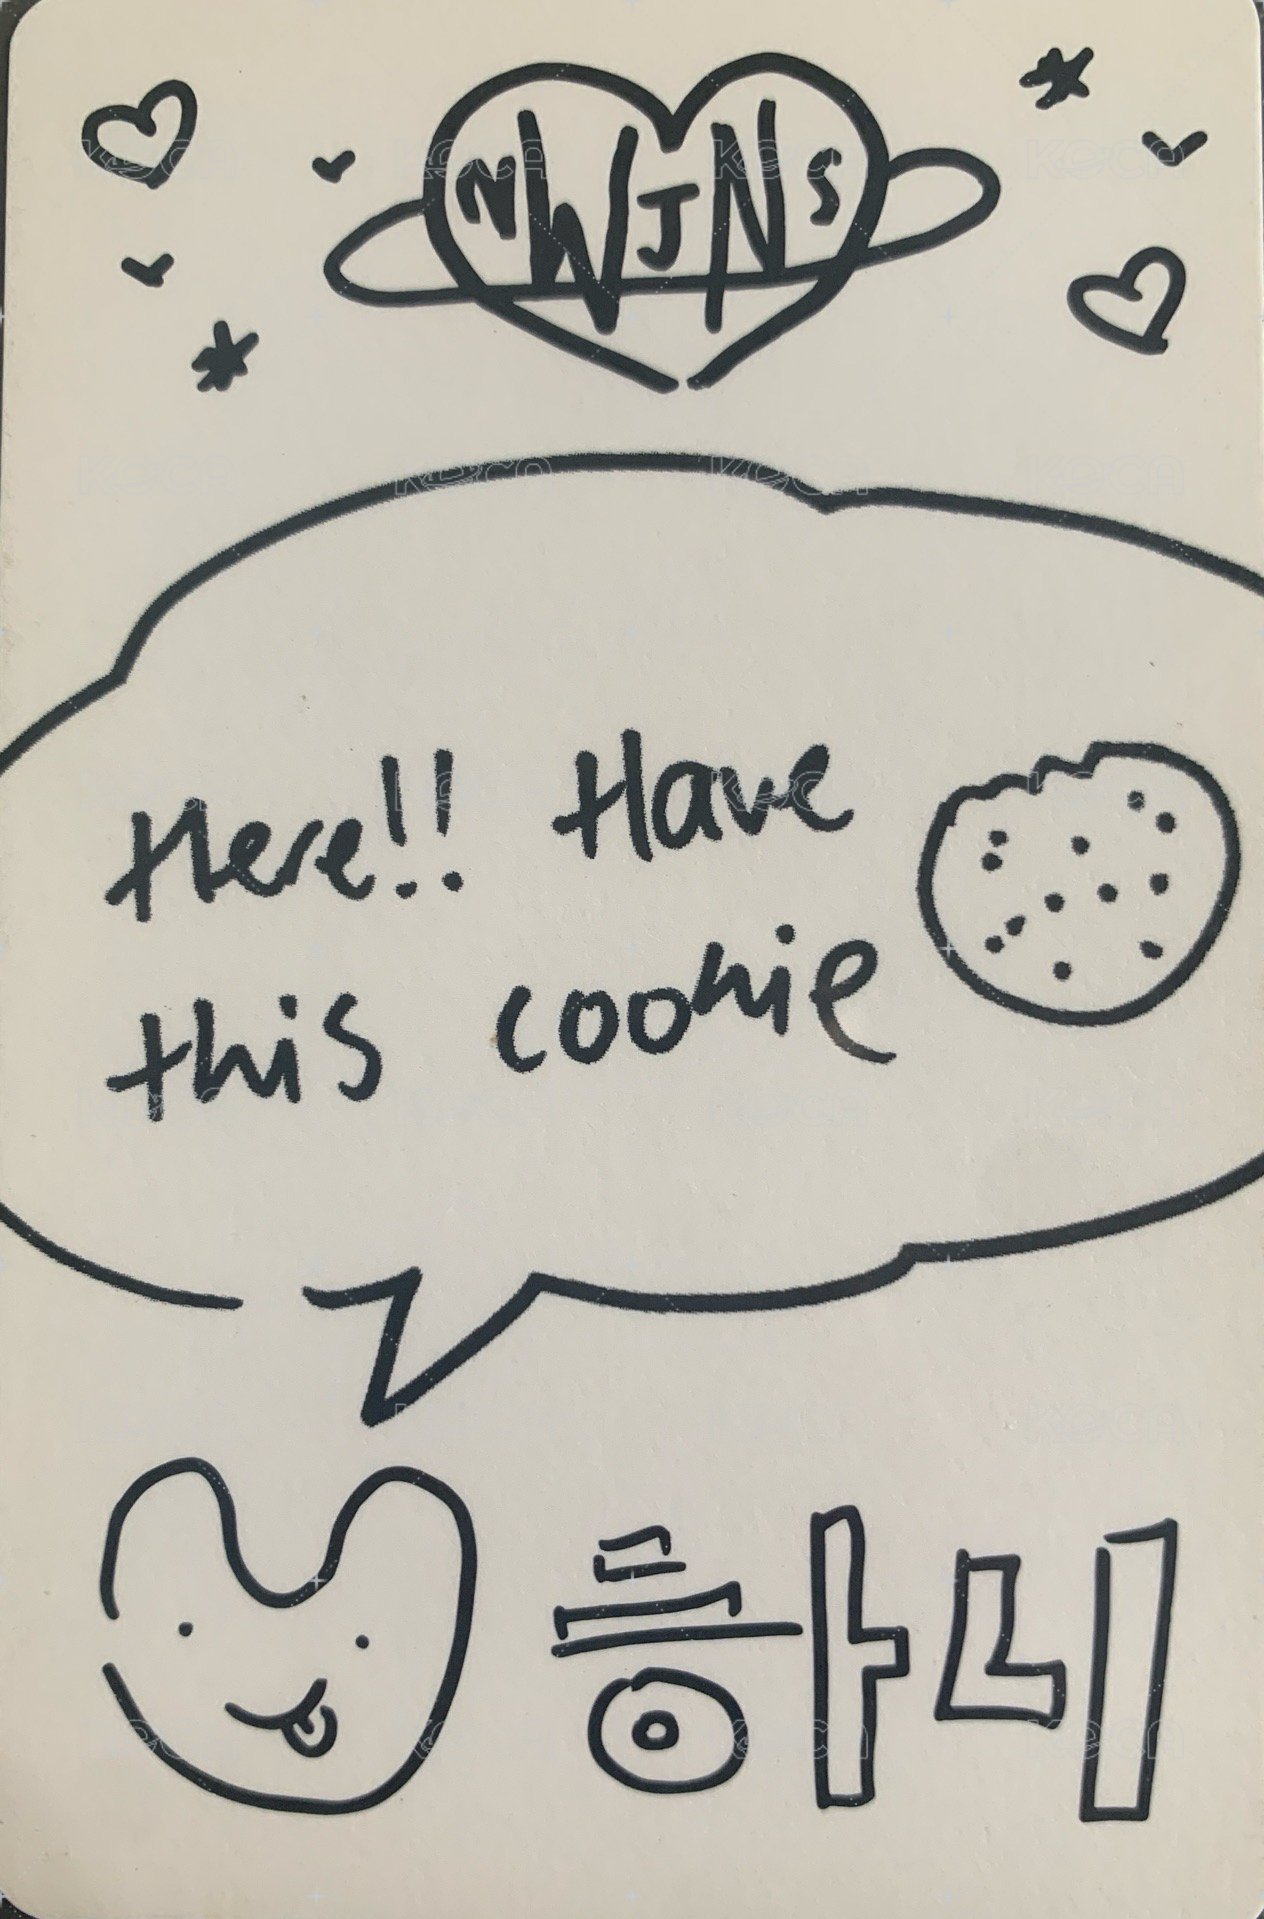 NWJNS
Here!! Have
this cookie
하니
KOCA